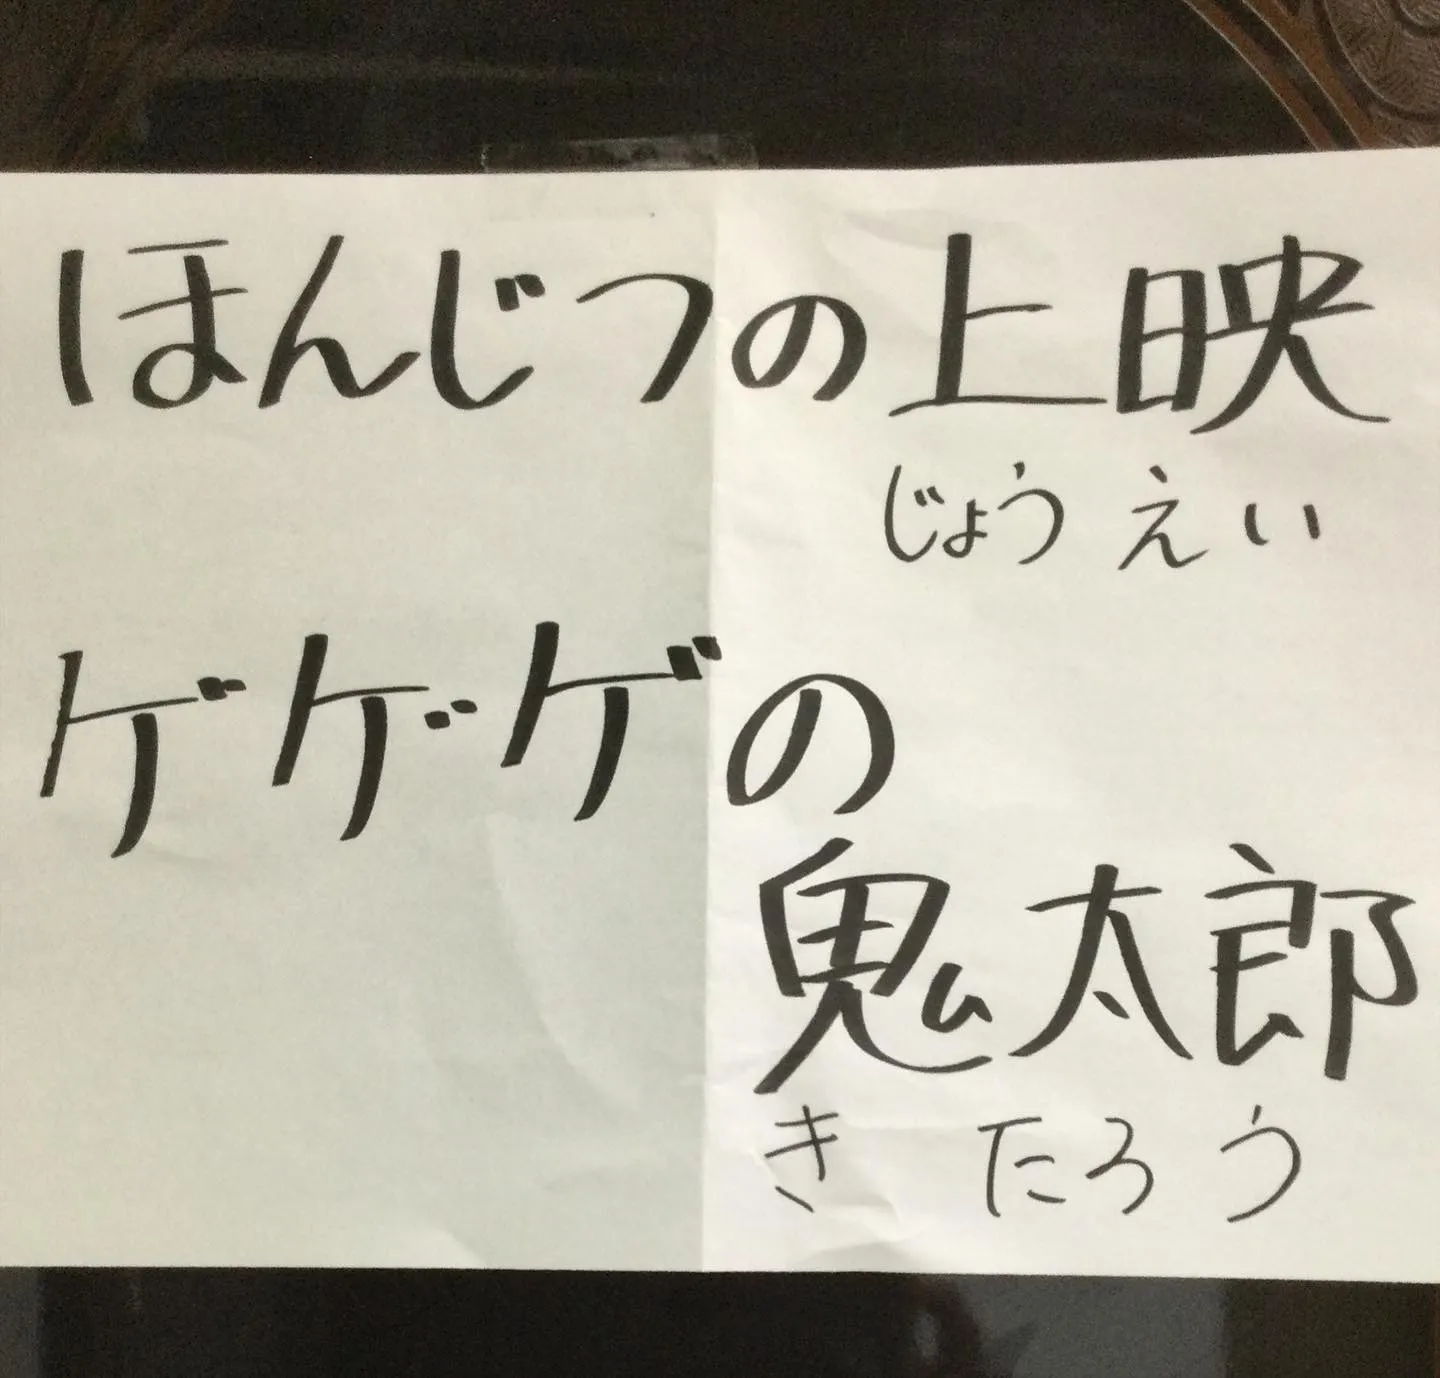 ほんじつの上映
じょうえい
ゲゲゲの
鬼太郎
きたろう